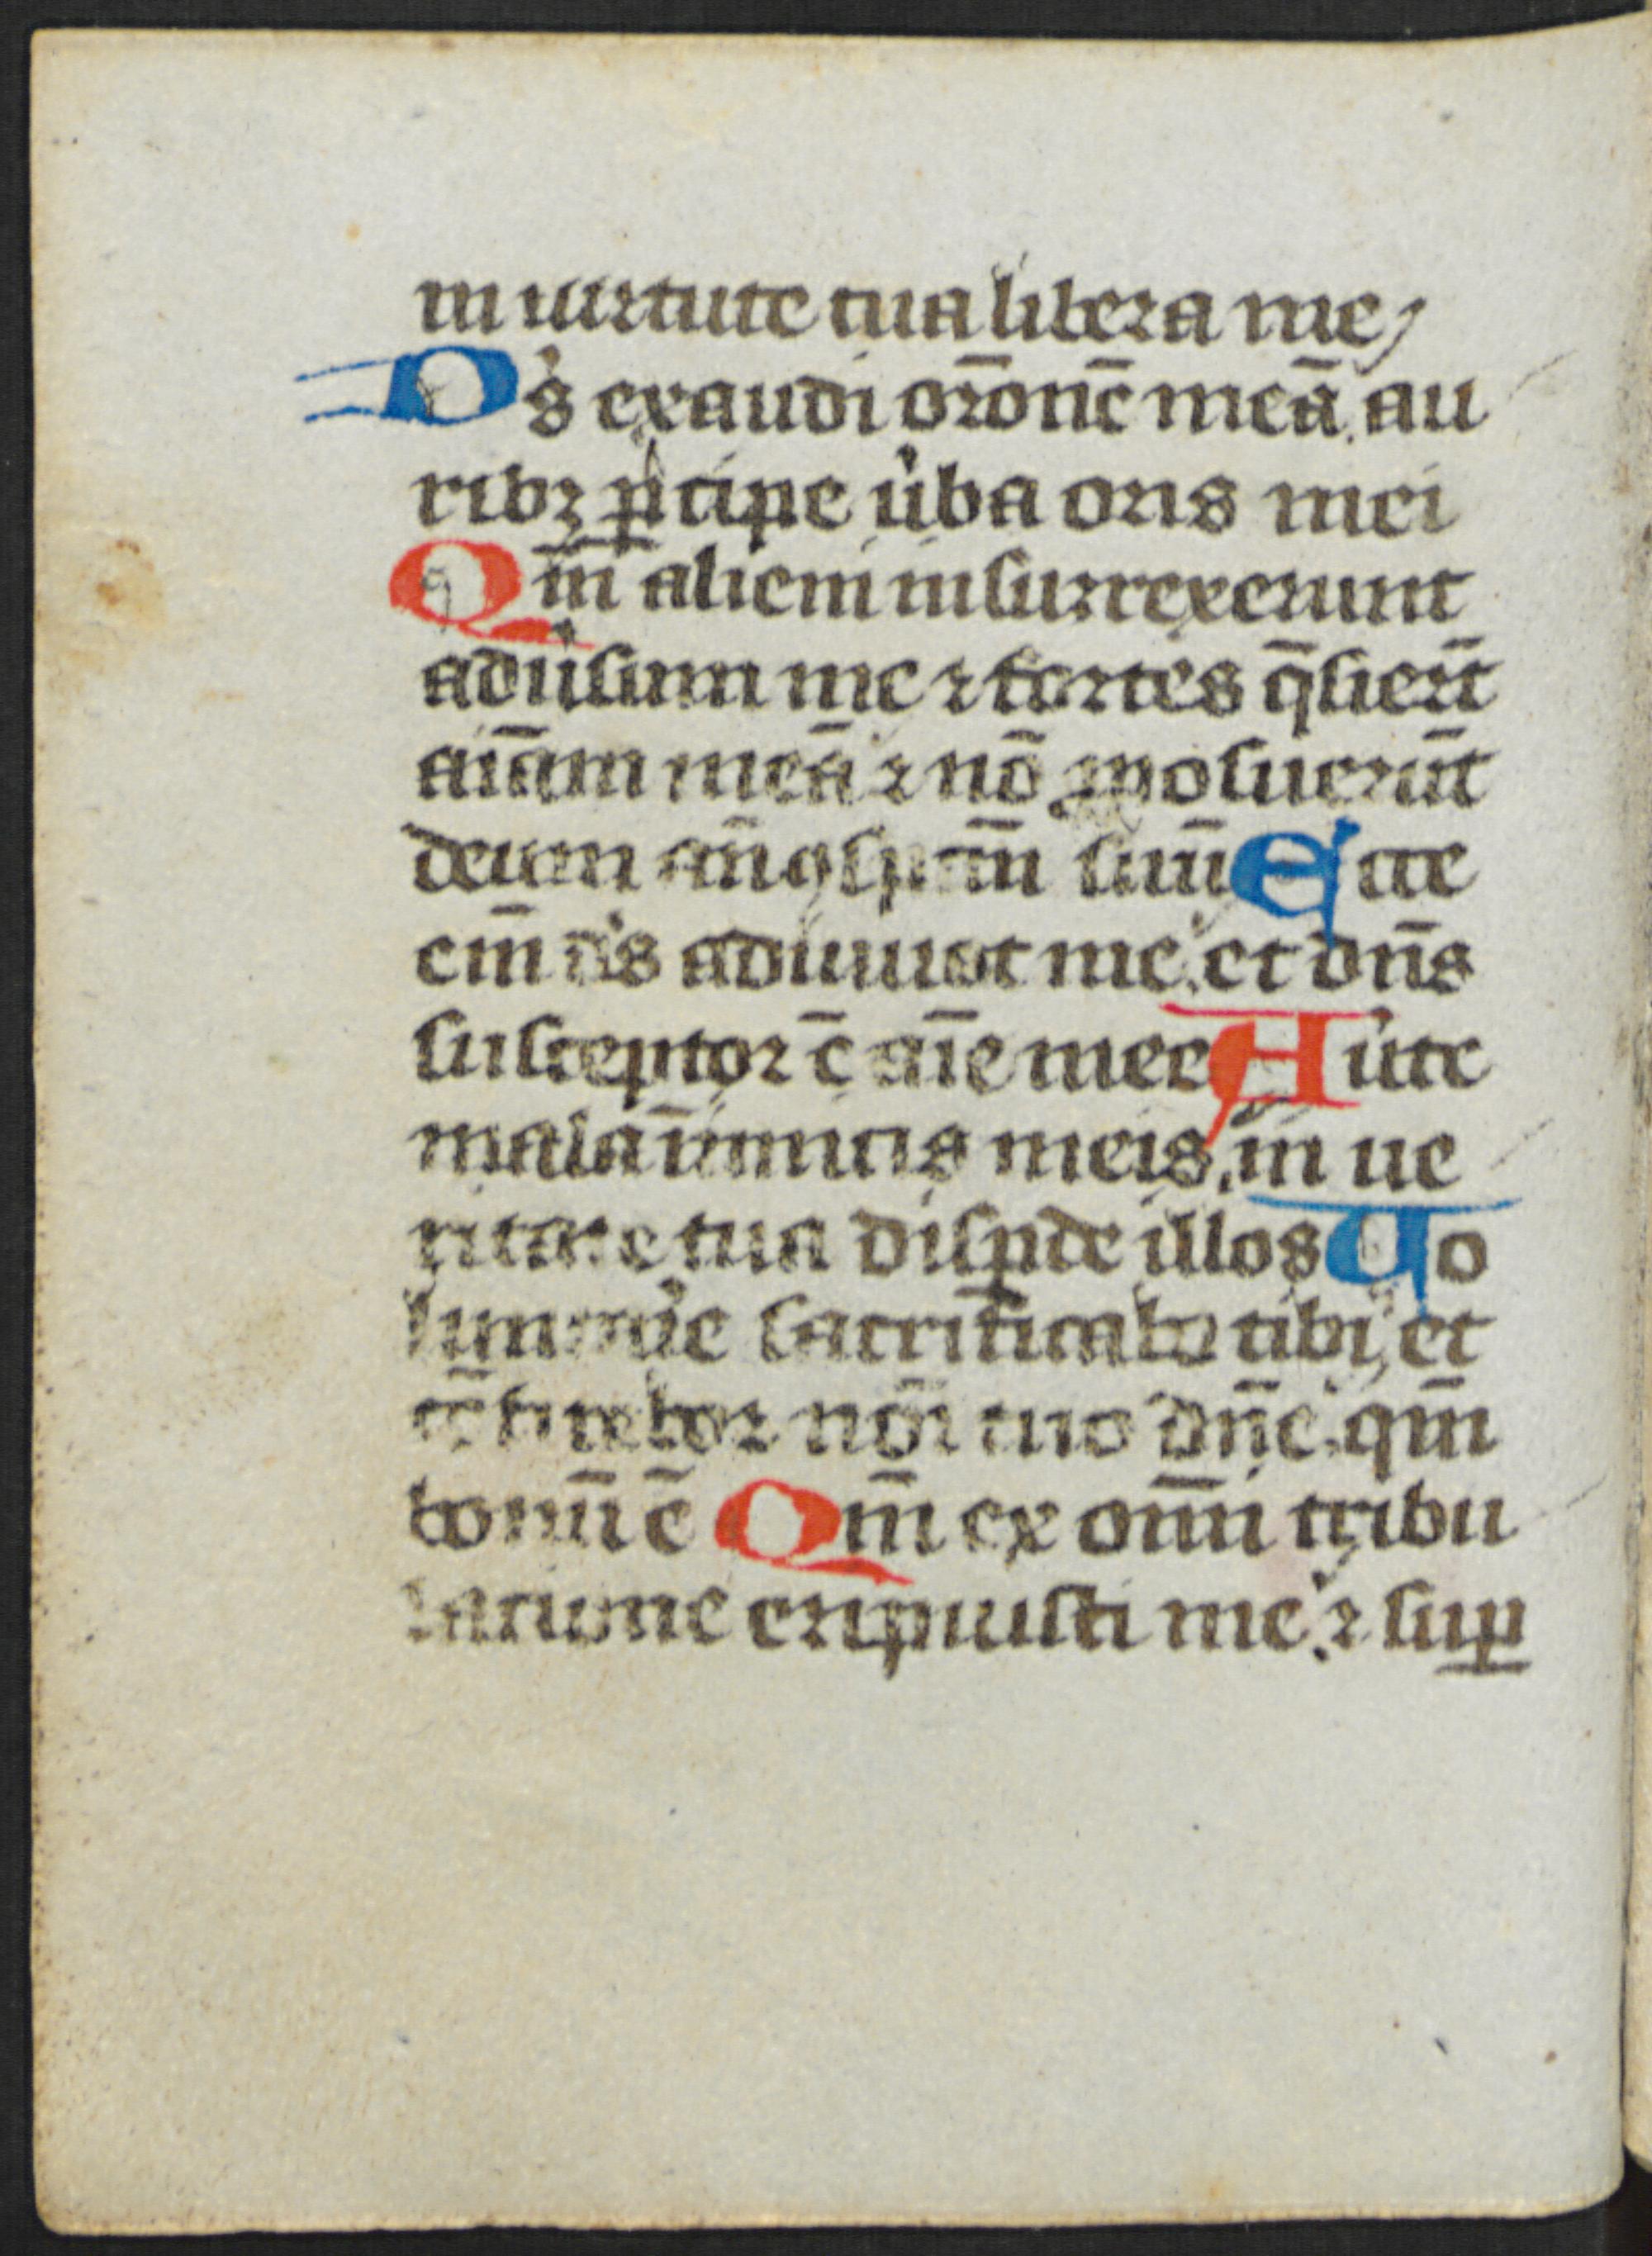 in uirtute tua libera me
Ds exaudi orōnē meā. au
ribꝫ ꝑcipe ůba oris mei
Qm̄ alieni insurrexerunt
adůsum me ⁊ fortes q̄sierūt
aīam meā ⁊ nō ꝓposuerūt
deum añ ꝯspectū suū Ecce
em̄ ds adiuuat me. et dn̄s
susceptor ē aīe mee Aůte
mala inimicis meis. in ue
ritate tua disꝑde illos Uo
luntarie sacrificabo tibi et
ꝯfitebor nōi tuo dn̄e. qm̄
bonū ē Qm̄ ex om̄i tribu
lacione eripuisti me. ⁊ suꝑ